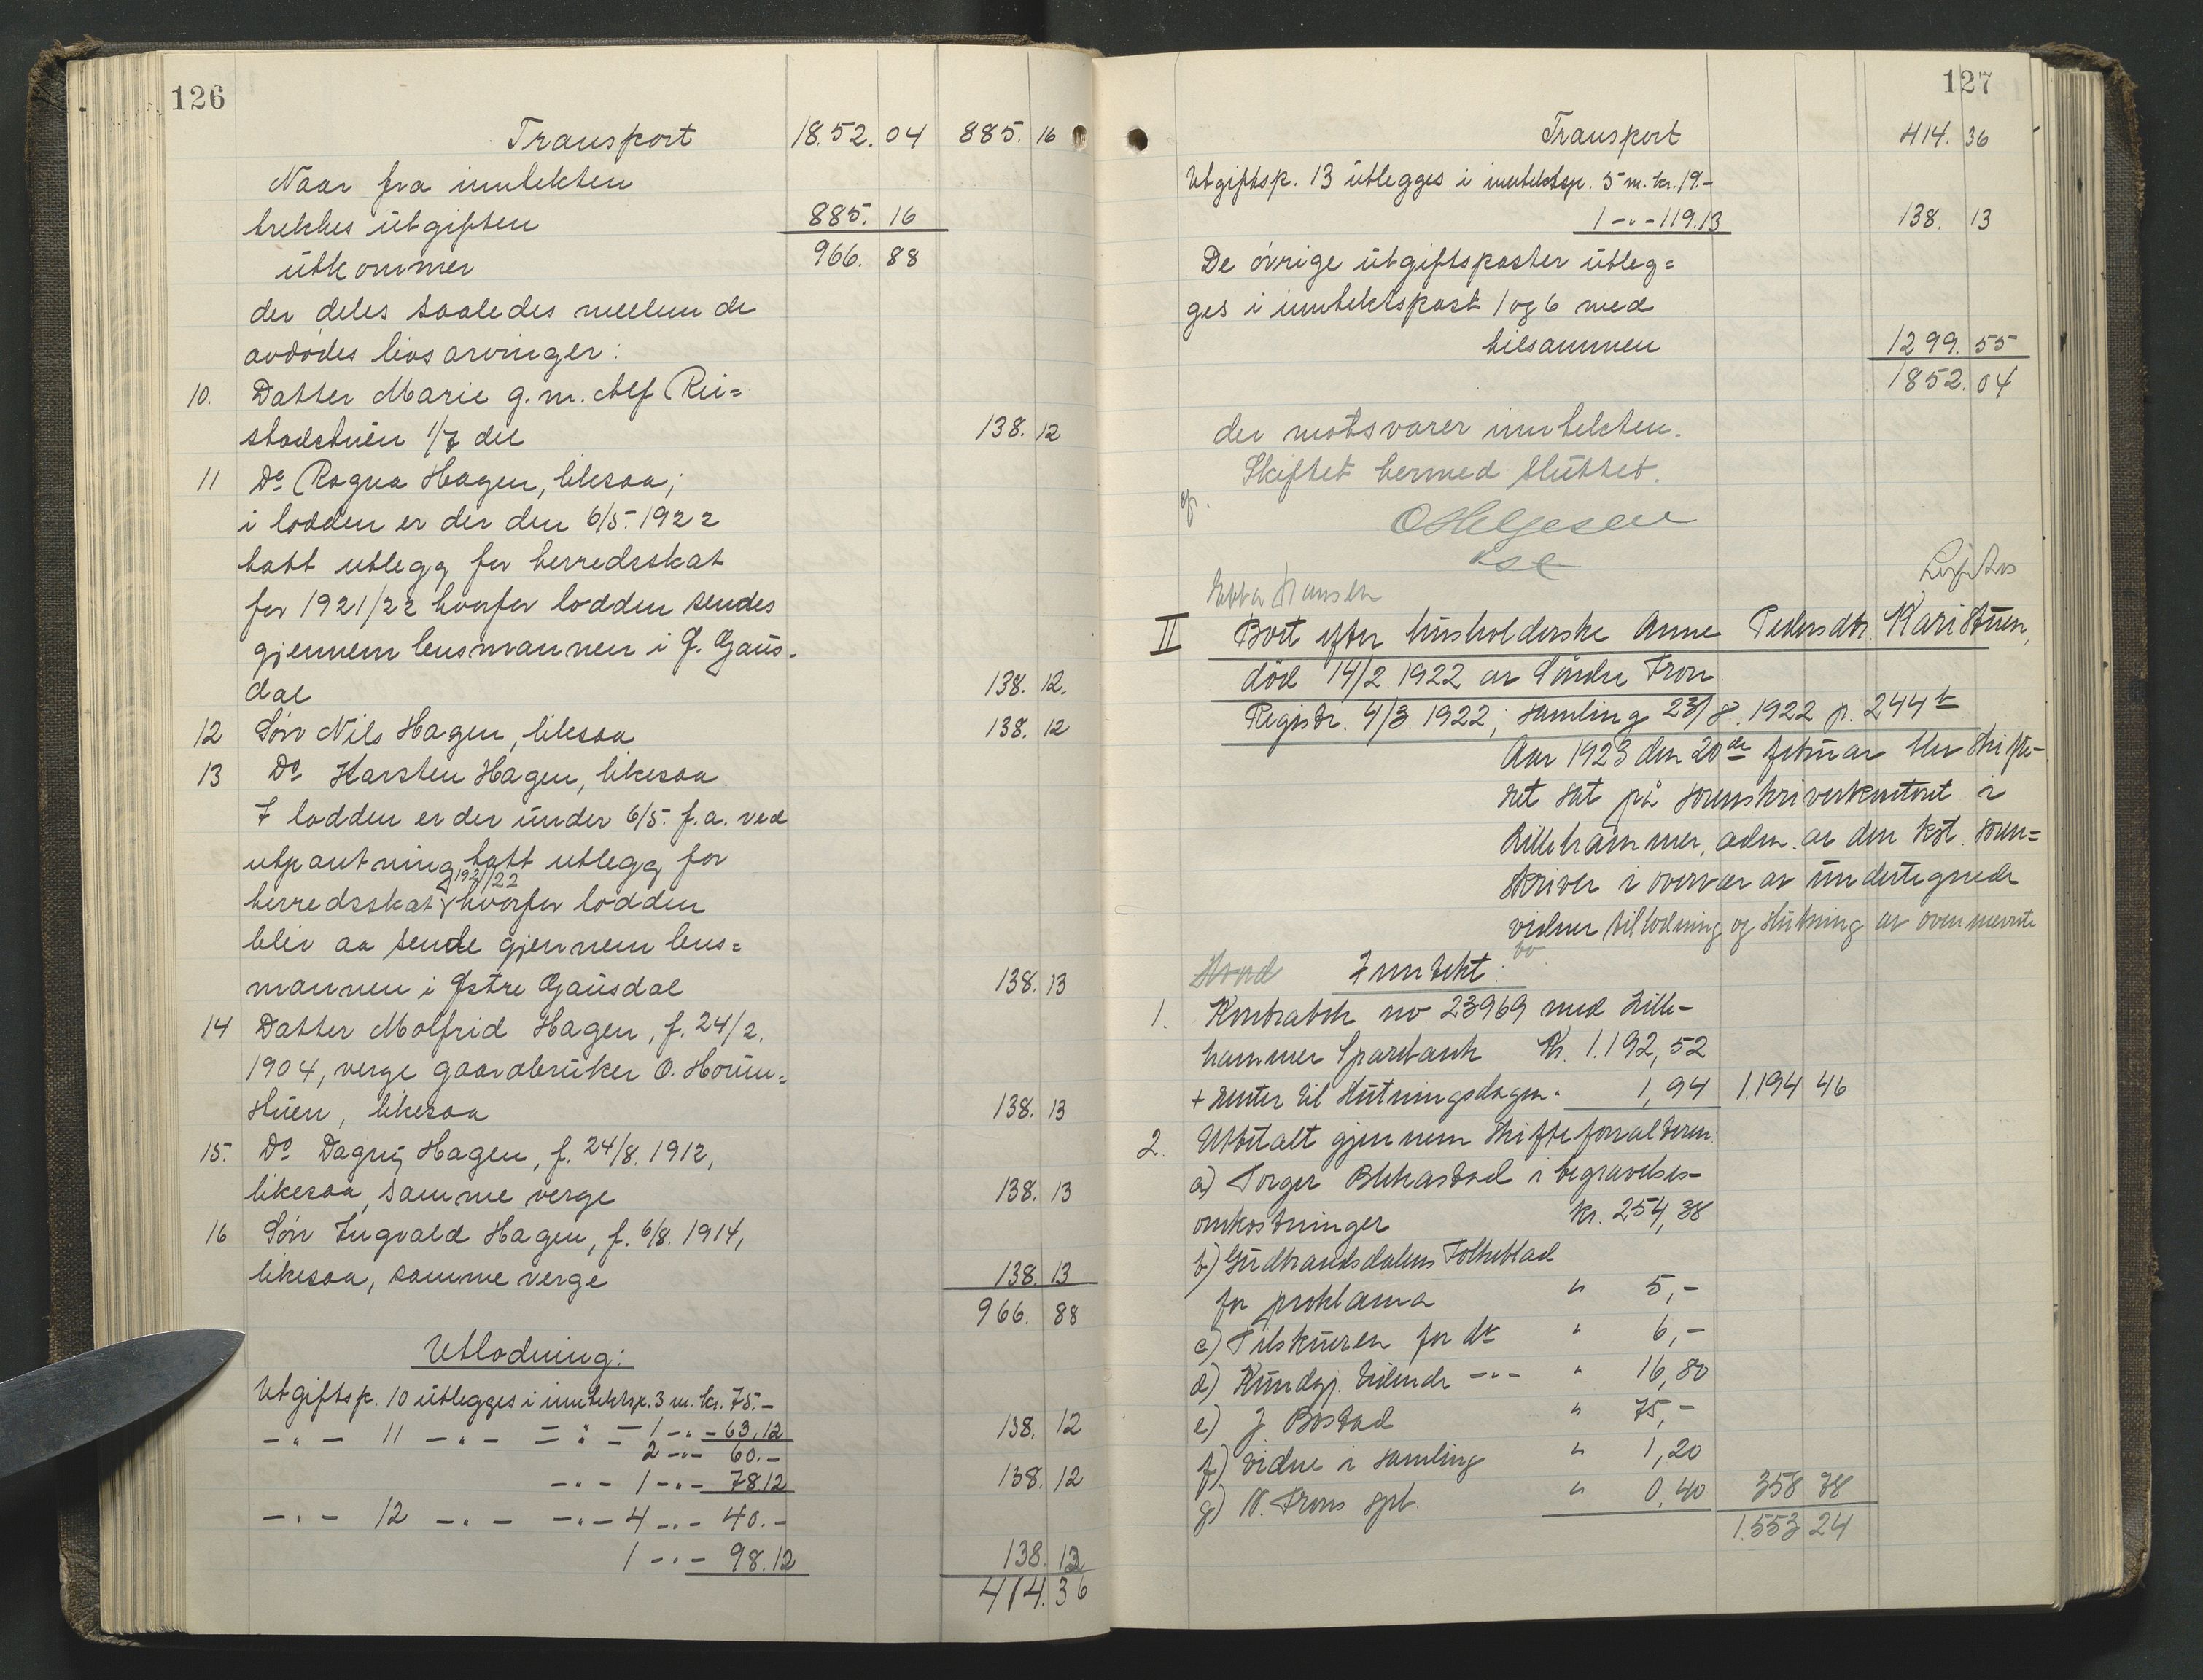 126
Transport 1852.04 885.16
Naar fra inntekten
trekkes utgiften 885.16
utkommer 966.88
der deles saaledes mellem de
avdødes livsarvinger:
10. Datter Marie g.m. Alf Rei=
stadstuen 1/7 del 138.12
11 Do Ragna Hagen, likesaa;
i lodden er der den 6/5.1922
tatt utlegg for herredsskat
for 1921/22 hvorfor lodden sendes
gjennem lensmannen i Ø. Gaus.
dal 138.12.
12 Søn Nils Hagen, likesaa 138.12
13 Do Karsten Hagen, likesaa.
I lodden er der under 6/5. f.a. ved
utpantning tatt utlegg for
herredsskat 1921/22 hvorfor lodden
blir aa sende gjennem lens=
mannen i Østre Gausdal 138.13
14 Datter Molfrid Hagen, f. 24/2.
1904, verge gaardbruker O. Hovin=
stuen, likesaa 138.13
15. Do Dagny Hagen, f. 24/8.1912,
likesaa, samme verge 138.13
16 Søn Ingvald Hagen, f. 6/8.1914,
likesaa, samme verge 138.13
966.88
Utlodning:
Utgiftsp. 10 utlegges i inntektsp. 3 m. kr. 75.-
1 -"- 63.12 138.12
-"- 11 -"- 2 -"- 60.-
-"- 1 -"- 78.12 138.12
-"- 12 -"- -"- 4 -"- 40.-
1 -"- 98.12 138.12
414.36
127
Transport 414.36
Utgiftsp. 13 utlegges i inntektsp. 5 m. kr. 19.-
1 -"- 119.13 138.13
De øvrige utgiftsposter utleg=
ges i inntektspost 1 og 6 med
tilsammen 1299.55
1852.04
der motsvarer inntekten.
Skiftet hermed sluttet.
O Helgesen
Ebba Hansen
II Boet efter husholderske Anne Pedersdtr. Karistuen,
død 14/2.1922 av Søndre Fron.
Registr. 4/3.1922; samling 23/8.1922 p. 244b
Aar 1923 den 20de februar blev skifte-
ret sat på sorenskriverkontoret i
Lillehammer, adm. av den kst. soren=
skriver i overvær av undertegnede
vidner til lodning og slutning av ovennevnte
bo.
Inntekt:
1. Kontrabok no. 23969 med Lille-
hammer Sparebank Kr. 1.192,52
+ renter til slutningsdagen. 1,94 1.194 46
2. Utbetalt gjennem skifteforvalteren:
a) Torger Blekastad i begravelses-
omkostninger kr. 254,38
b) Gudbrandsdalens Folkeblad
for proklama " 5,-
c) Tilskueren for do " 6,-
d) Kundgj. tidende -"- " 16,80
e) J Bostad " 75,-
f) Vidne i samling " 1,20
g) N. Frons spb. " 0,40 358 78
1.553 24